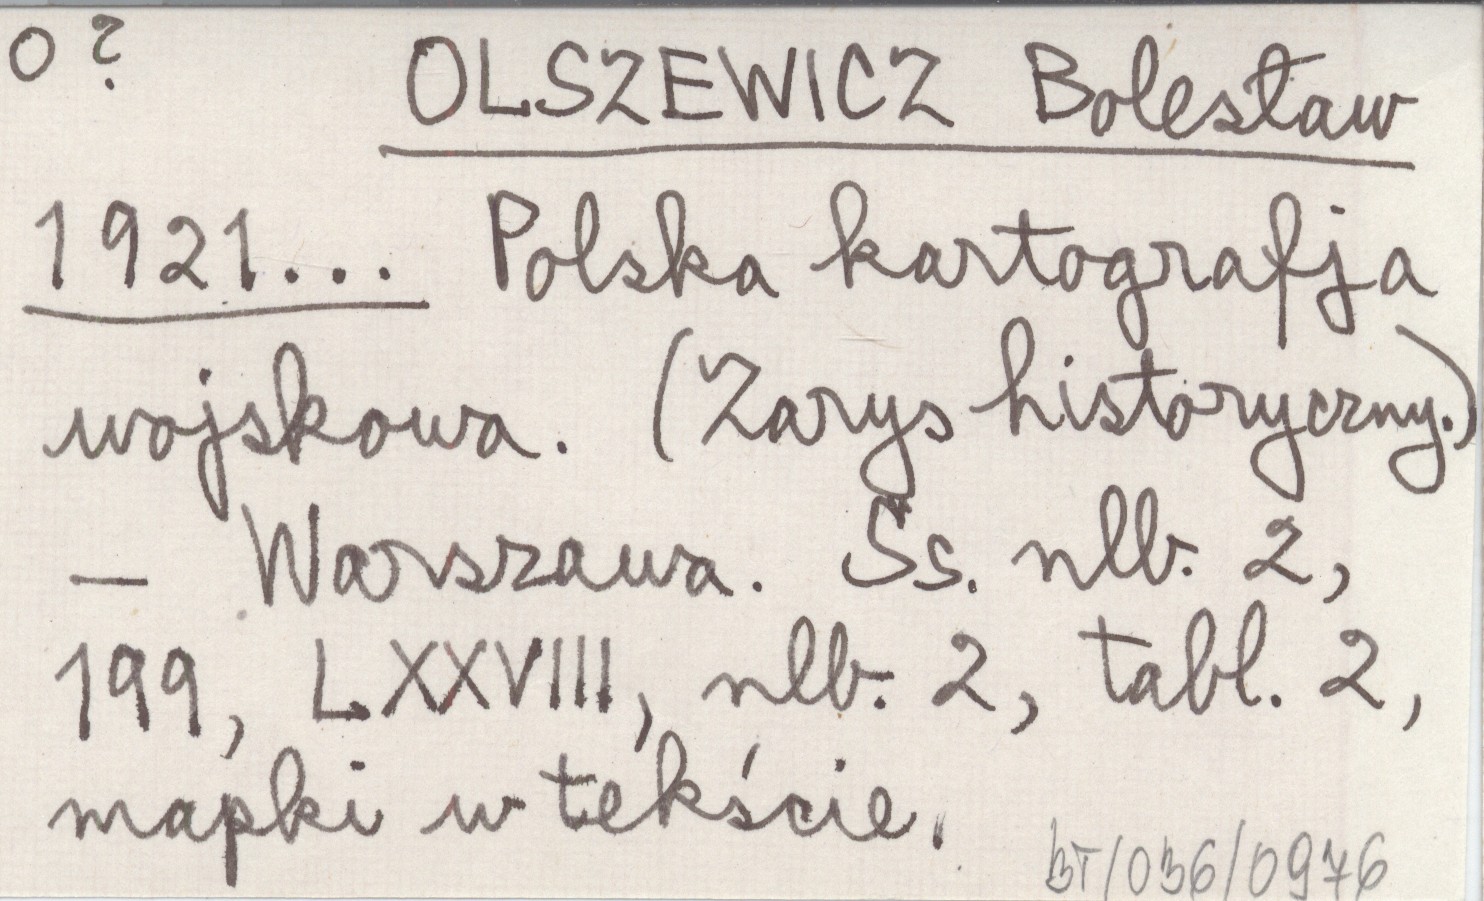 O ?
OLSZEWICZ Bolesław
1921... Polska kartografja
wojskowa. (Zarys historyczny.)
— Warszawa. Ss. nlb. 2,
199, LXXVIII, nlb. 2, tabl. 2,
mapki w tekście.
BT/036/0976